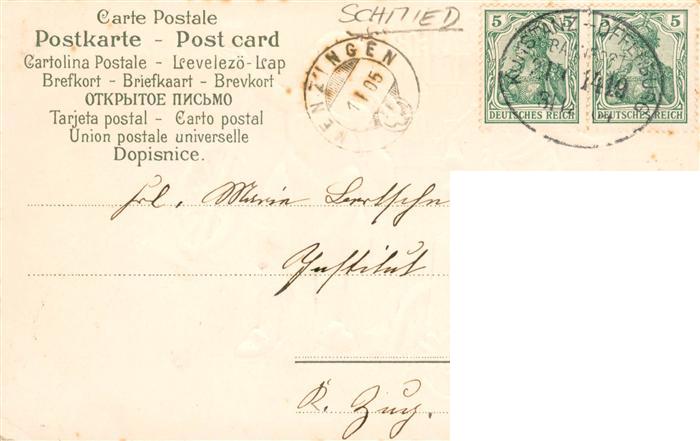 Carte Postale
Postkarte - Post card
Cartolina Postale - Levelezö-Lap
Brefkort - Briefkaart - Brevkort
ОТКРЫТОЕ ПИСЬМО
Tarjeta postal - Carto postal
Union postale universelle
Dopisnice.
SCHMIED
MENZINGEN
1 I 05
5 5
DEUTSCHES REICH
5 5
DEUTSCHES REICH
KONSTANZ - OFFENBURG
1419
Frl. Marie
Institut
K. Zug.